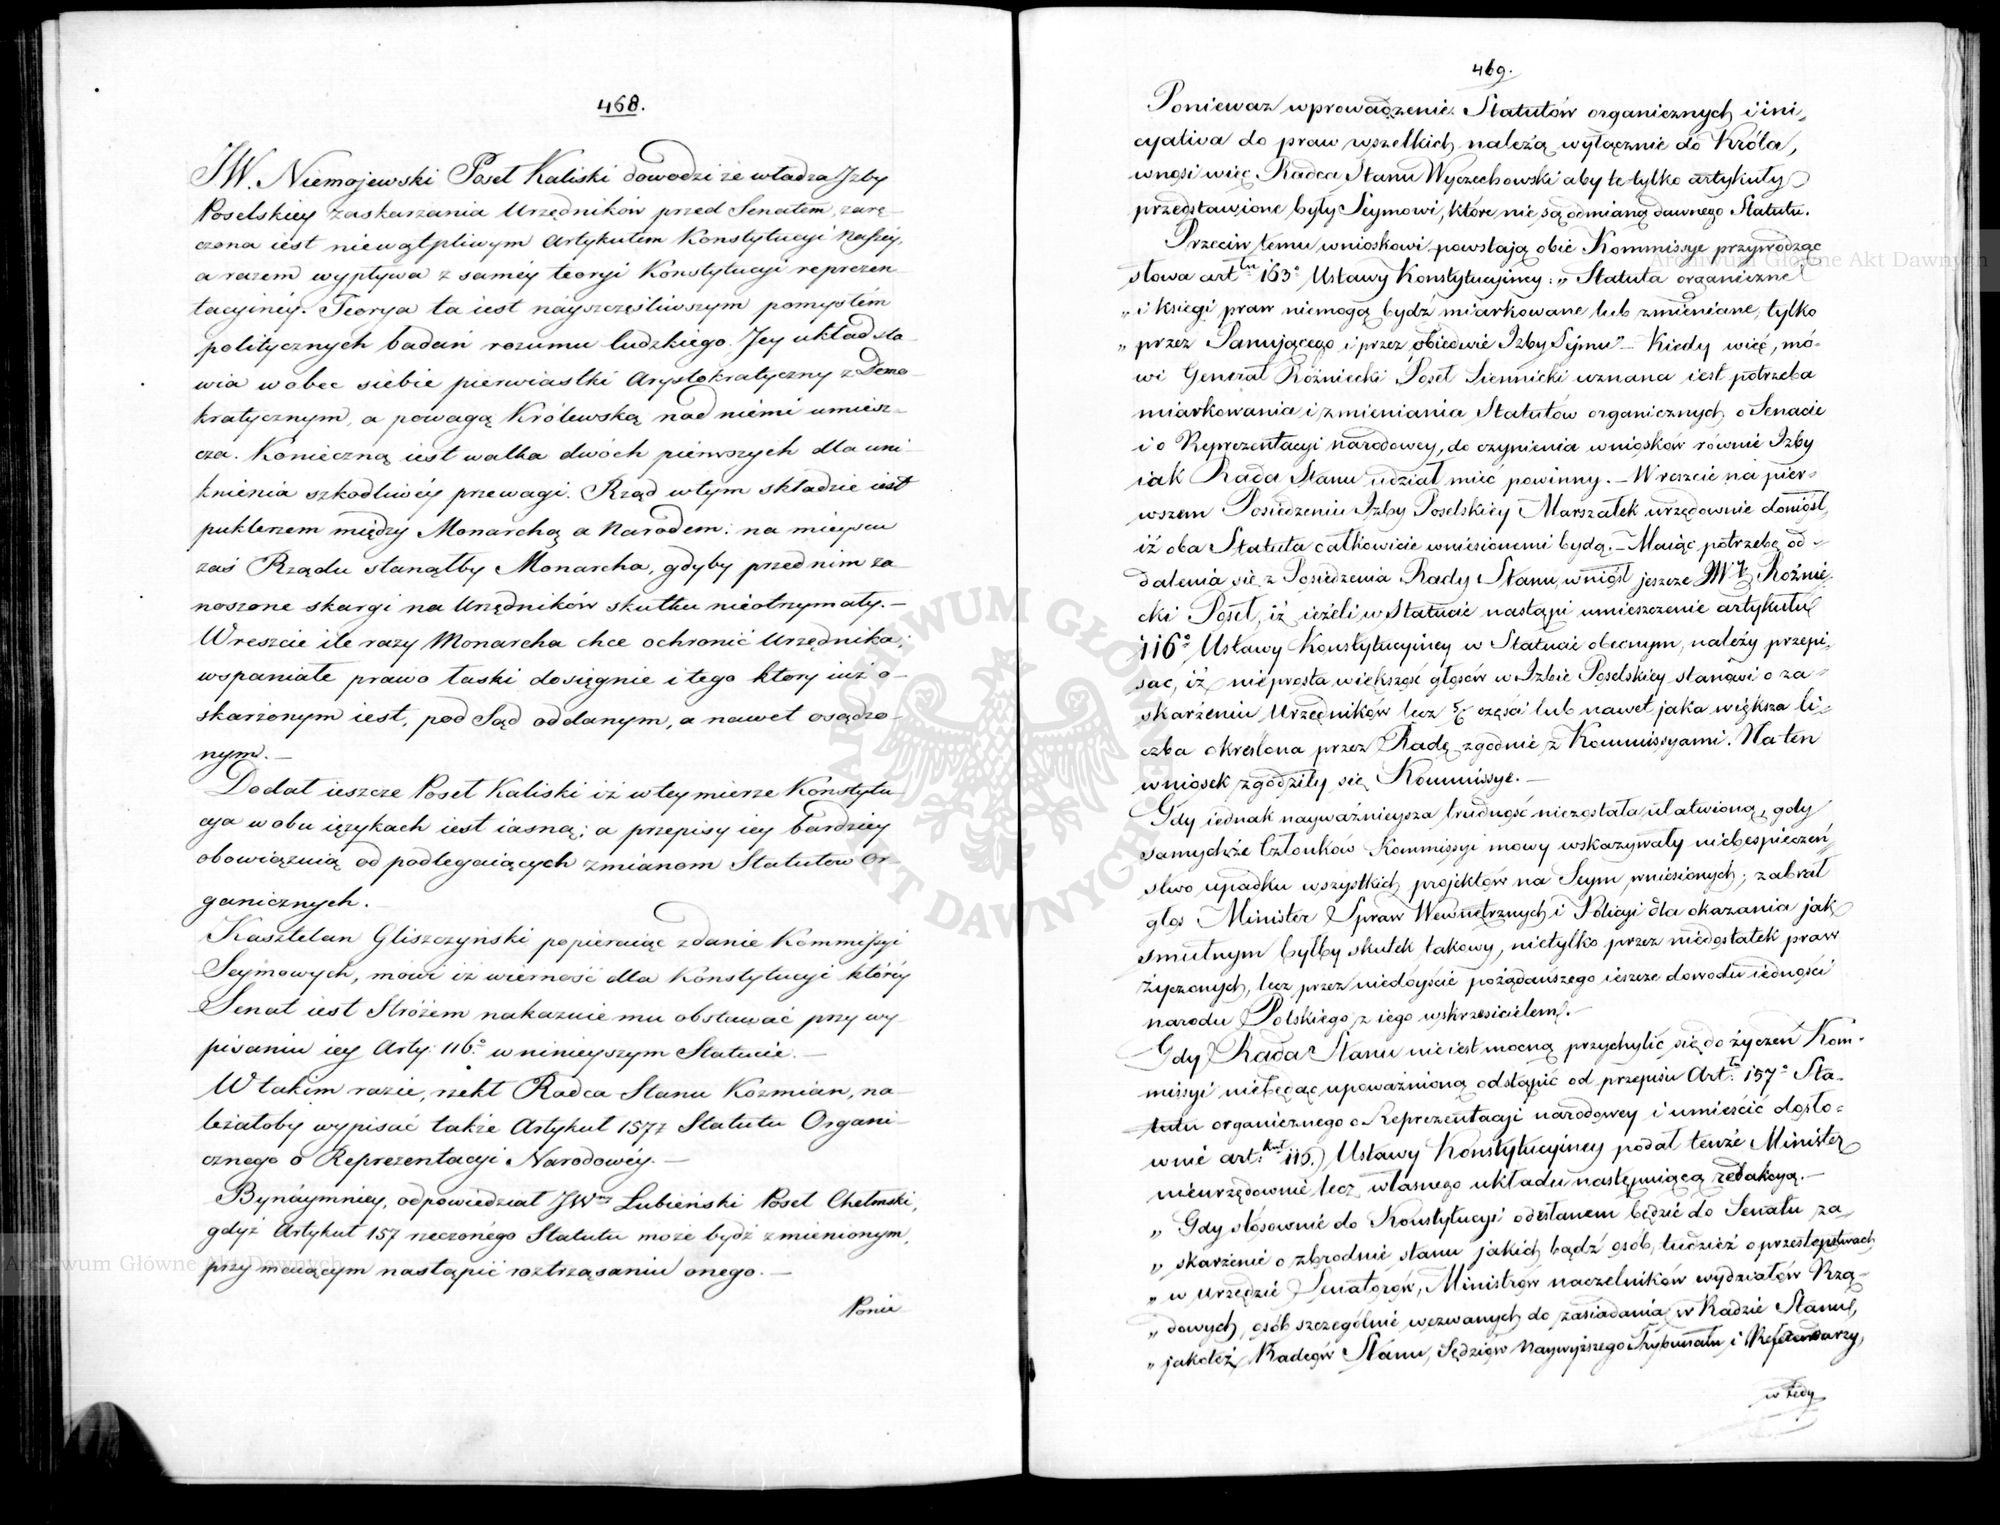 468.
JW. Niemojewski Poseł Kaliski dowodzi że władza Izby
Poselskiey zaskarżania Urzędników przed Senatem, zarę-
czona iest niewątpliwym Artykułem Konstytucyi Naszéy,
a razem wypływa z saméy teoryi Konstytucyi reprezen
tacyinéy. Teorya ta iest nayszczęśliwszym pomysłem
politycznych badań rozumu ludzkiego. Jey układ sta
wia wobec siebie pierwiastki Arystokratyczny z Demo-
kratycznym, a powagą Królewską nad niémi umiesz-
cza. Konieczną iest walka dwóch pierwszych dla uni-
knienia szkodliwéy przewagi. Rząd w tym składzie iest
puklerzem między Monarchą a Narodem: na mieyscu
zaś Rządu stanąłby Monarcha, gdyby przed nim za-
noszone skargi na Urzędników skutku nieotrzymały. –
Wreszcie ile razy Monarcha chce ochronić Urzędnika;
wspaniałe prawo łaski dosięgnie i tego ktory iuż o-
skarżonym iest, pod Sąd oddanym, a nawet osądzo-
nym. –
Dodał ieszcze Poseł Kaliski iż w tey mierze Konstytu
cya w obu ięzykach iest iasną; a przepisy iey bardziey
obowiązuią od podlegaiących zmianom Statutow Or-
ganicznych. –
Kasztelan Gliszczyński popieraiąc zdanie Kommissyi
Seymowych, mówi iż wierność dla Konstytucyi któréy
Senat iest Stróżem nakazuie mu obstawać przy wy-
pisaniu iey Arty: 116.° w ninieyszym Statucie. –
W takim razie, rzekł Radca Stanu Koźmian, na-
leżałoby wypisać także Artykuł 157z Statutu Organi-
cznego o Reprezentacyi Narodowéy. –
Bynáymniey, odpowiedział JWny Łubieński Poseł Chełmski,
gdyż Artykuł 157 rzeczonégo Statutu może bydź zmienionym,
przy maiącym nastąpić roztrząsaniu onego. –
Ponie
469.
Ponieważ wprowadzenie Statutów organicznych i ini-
cyativa do praw wszelkich należą wyłącznie do Króla,
wnosi więc Radca Stanu Wyczechowski aby te tylko artykuły
przedstawione były Seymowi, które nie są odmianą dawnego Statutu.
Przeciw temu wnioskowi powstają obie Kommissye przywodząc
słowa art.łu 163° Ustawy Konstytucyiney: „Statuta organiczne
„ i księgi praw niemogą bydź miarkowane lub zmieniane, tylko
„ przez Panującego i przez obiedwie Izby Sejmu” – Kiedy więc, mó-
wi Generał Rożniecki Poseł Siennicki uznana iest potrzeba
miarkowania i zmieniania Statutów organicznych o Senacie
i o Reprezentacyi narodowey, do czynienia wniosków równie Izby
iak Rada Stanu udział mieć powinny. – Wreszcie na pier-
wszem Posiedzeniu Izby Poselskiey Marszałek urzędownie doniósł,
iż oba Statuta całkowicie wniesionemi będą. – Maiąc potrzebę od-
dalenia się z Posiedzenia Rady Stanu, wniósł jeszcze JWy Rożnie
cki Poseł, iż ieżeli w Statucie nastąpi umieszczenie artykułu
116° Ustawy Konstytucyiney w Statucie obecnym, należy przepi-
sać, iż nieprosta większość głosów w Izbie Poselskiey stanowi o za-
skarżeniu Urzędników lecz części lub nawet jaka większa li-
czba określona przez Radę zgodnie z Kommissyami. Na ten
wniosek zgodziły się Kommissye. –
Gdy iednak nayważnieysza trudność niezostała ułatwioną, gdy
samychże Członków Kommissyi mowy wskazywały niebespieczeń
stwo upadku wszystkich projektów na Seym wniesionych; zabrał
głos Minister Spraw Wewnętrznych i Policyi dla okazania jak
smutnym byłby skutek takowy, nietylko przez niedostatek praw
życzonych, lecz przez niedoyście pożądanszego ieszcze dowodu iedności
narodu Polskiego z iego wskrzesicielem. –
Gdy Rada Stanu nie iest mocną przychylić się do życzeń Kom-
missyi niebędąc upoważnioną odstąpić od przepisu Art.łu 157° Sta-
tutu organicznego o Reprezentacyi narodowey i umieścić dosło-
wnie art.kuł 116.) Ustawy Konstytucyiney podał tenże Minister
nieurzędownie lecz własnego układu następuiącą redakcyą. –
„ Gdy stosownie do Konstytucyi odesłanem będzie do Senatu za-
„ skarżenie o zbrodnie stanu jakich bądź osób, tudzież o przestępstwach
„ w urzędzie Senatorów, Ministrów naczelników wydziałów Rzą-
„ dowych, osób szczególnie wezwanych do zasiadania w Radzie Stanu,
„ jakoteż Radców Stanu, Sędziów Naywyższego Trybunału i Referendarzy,
wtedy
Archiwum Główne Akt Dawnych
Archiwum Główne Akt Dawnych
ARCHIWUM GŁÓWNE AKT DAWNYCH